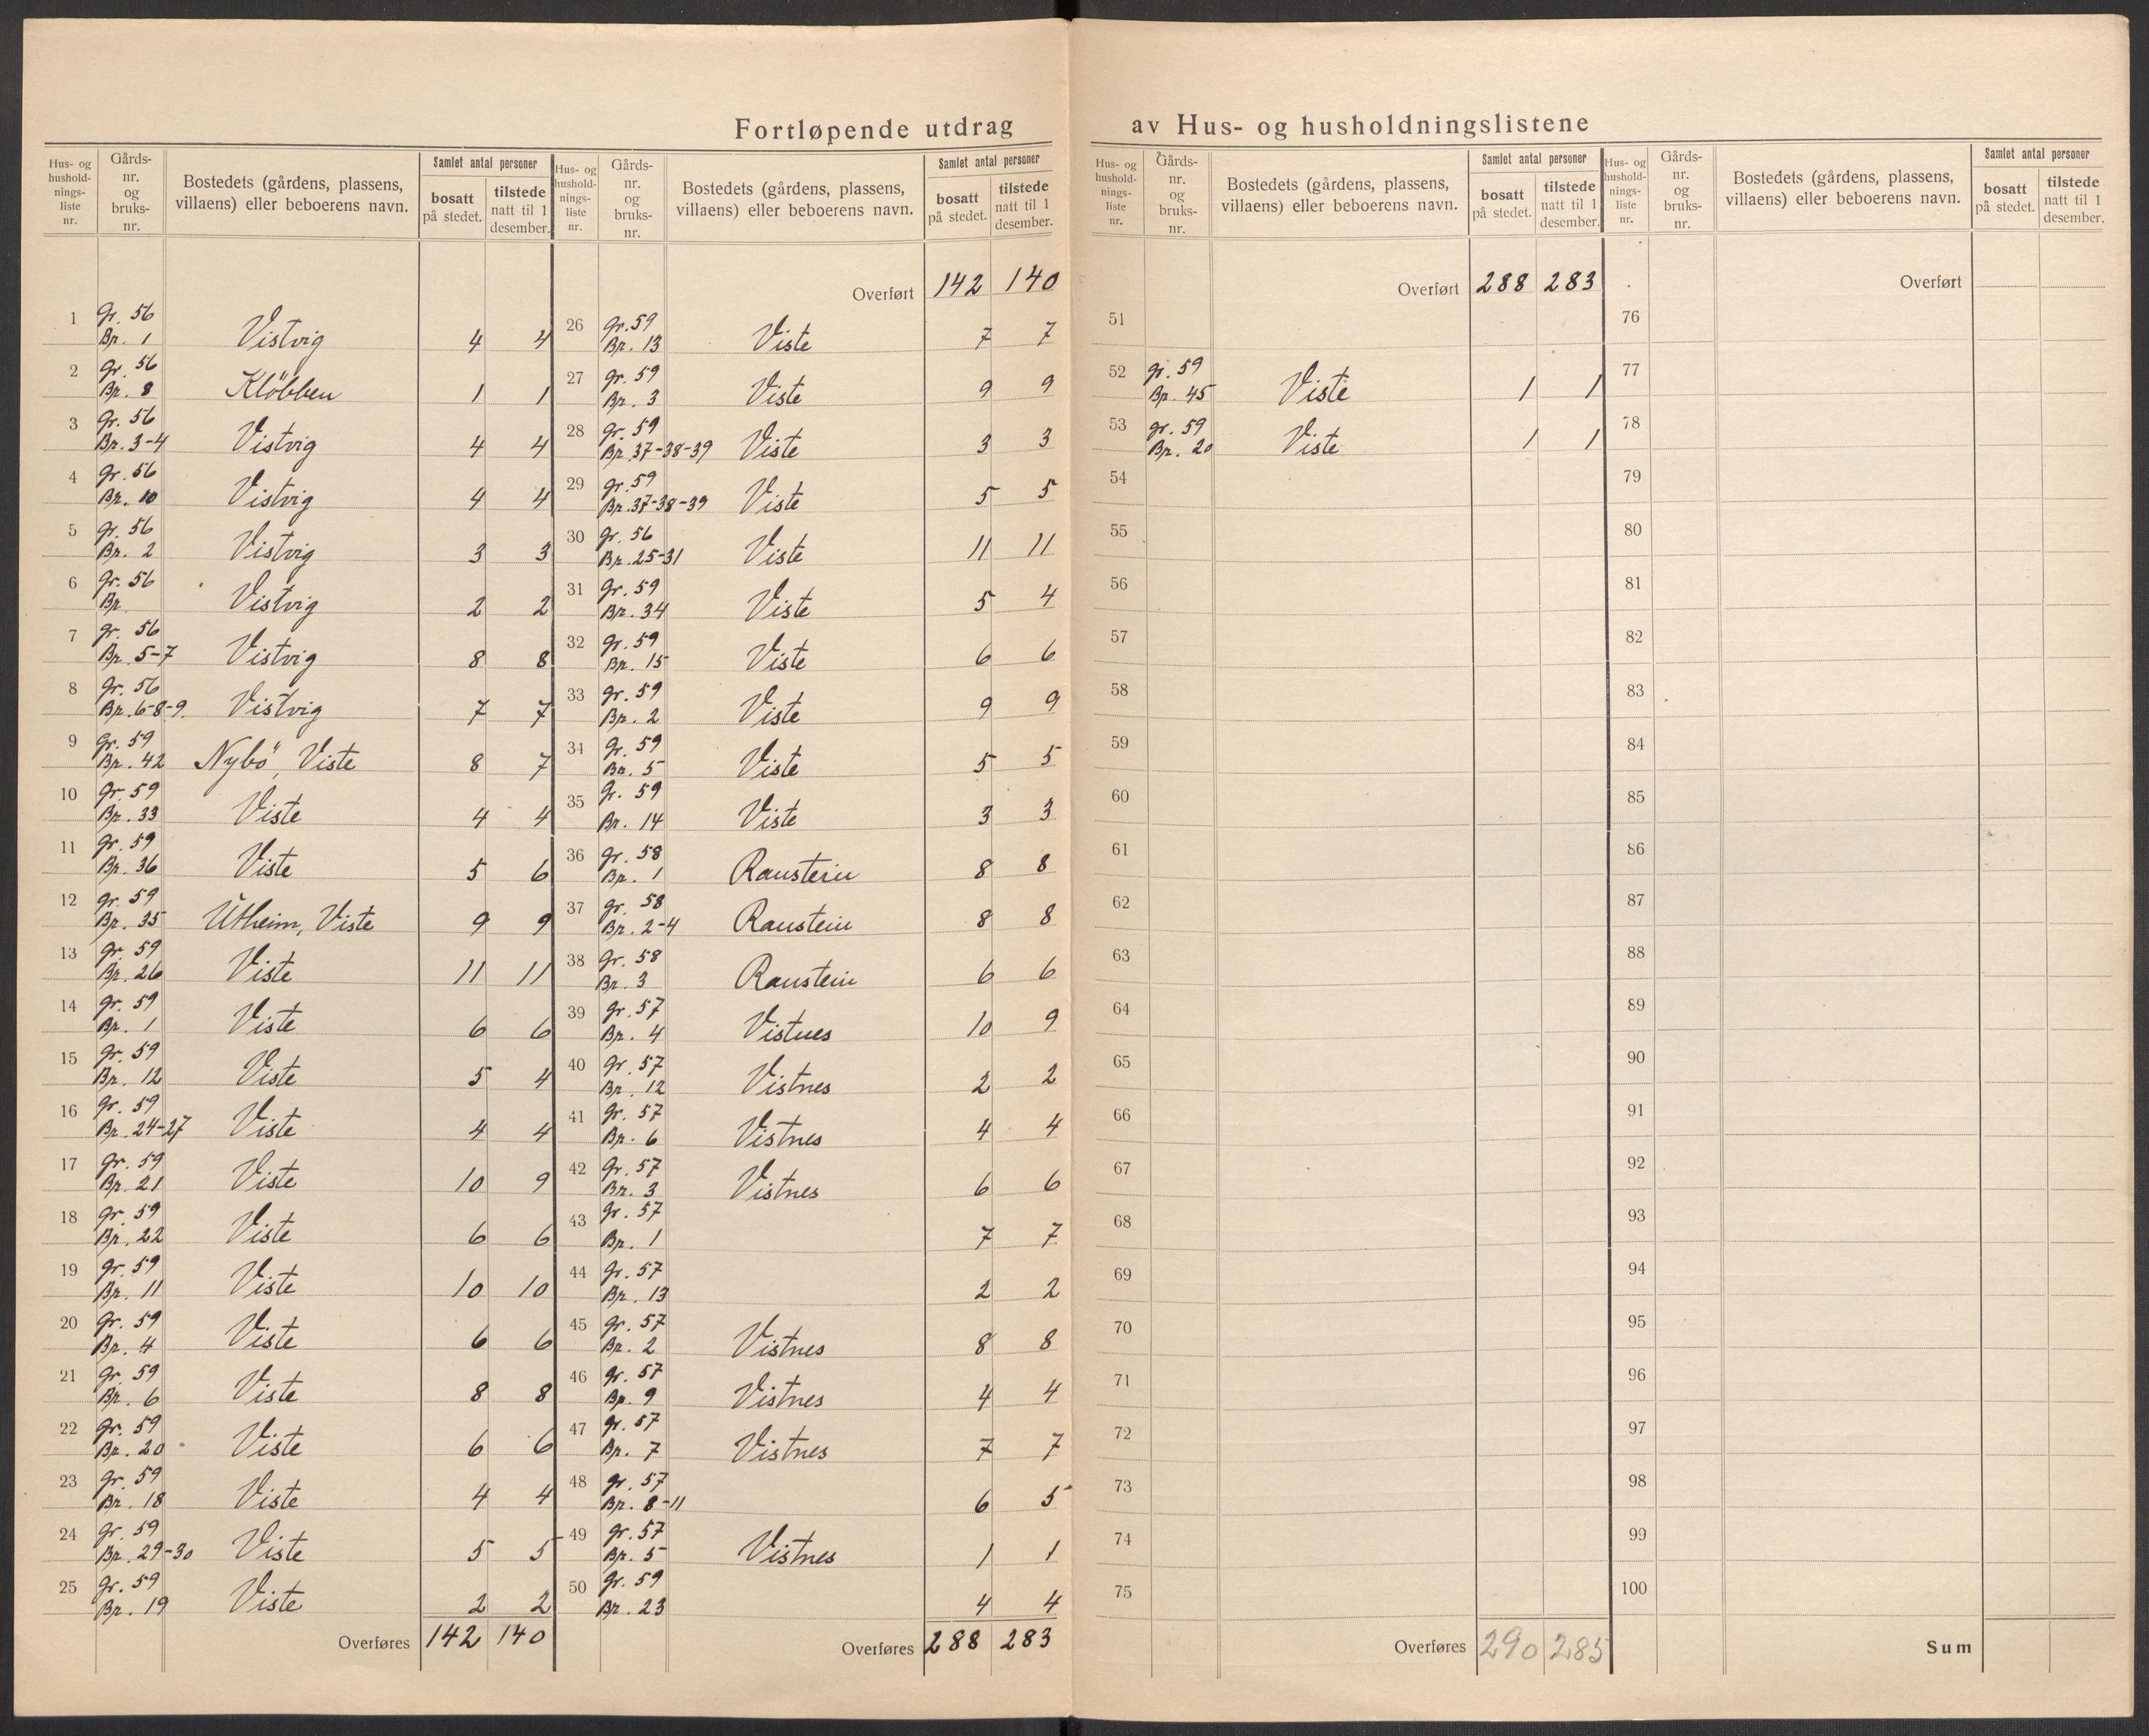 Fortløpende utdrag av Hus- og husholdningslistene
Hus- og hushold-nings-liste nr. Gårds-nr. og bruks-nr. Bostedets (gårdens, plassens, villaens) eller beboerens navn. Samlet antal personer bosatt på stedet. tilstede natt til 1 desember.
1 Gr. 56 Br. 1 Vistvig 4 4
2 Gr. 56 Br. 8 Klöbben 1 1
3 Gr. 56 Br. 3-4 Vistvig 4 4
4 Gr. 56 Br. 10 Vistvig 4 4
5 Gr. 56 Br. 2 Vistvig 3 3
6 Gr. 56 Br. Vistvig 2 2
7 Gr. 56 Br. 5-7 Vistvig 8 8
8 Gr. 56 Br. 6-8-9. Vistvig 7 7
9 Gr. 59 Br. 42 Nybö, Viste 8 7
10 Gr. 59 Br. 33 Viste 4 4
11 Gr. 59 Br. 36 Viste 5 6
12 Gr. 59 Br. 35 Utheim, Viste 9 9
13 Gr. 59 Br. 26 Viste 11 11
14 Gr. 59 Br. 1 Viste 6 6
15 Gr. 59 Br. 12 Viste 5 4
16 Gr. 59 Br. 24-27 Viste 4 4
17 Gr. 59 Br. 21 Viste 10 9
18 Gr. 59 Br. 22 Viste 6 6
19 Gr. 59 Br. 11 Viste 10 10
20 Gr. 59 Br. 4 Viste 6 6
21 Gr. 59 Br. 6 Viste 8 8
22 Gr. 59 Br. 20 Viste 6 6
23 Gr. 59 Br. 18 Viste 4 4
24 Gr. 59 Br. 29-30 Viste 5 5
25 Gr. 59 Br. 19 Viste 2 2
Overføres 142 140
Hus- og hushold-nings-liste nr. Gårds-nr. og bruks-nr. Bostedets (gårdens, plassens, villaens) eller beboerens navn. Samlet antal personer bosatt på stedet. tilstede natt til 1 desember.
Overført 142 140
26 Gr. 59 Br. 13 Viste 7 7
27 Gr. 59 Br. 3 Viste 9 9
28 Gr. 59 Br. 37-38-39 Viste 3 3
29 Gr. 59 Br. 37-38-39 Viste 5 5
30 Gr. 56 Br. 25-31 Viste 11 11
31 Gr. 59 Br. 34 Viste 5 4
32 Gr. 59 Br. 15 Viste 6 6
33 Gr. 59 Br. 2 Viste 9 9
34 Gr. 59 Br. 5 Viste 5 5
35 Gr. 59 Br. 14 Viste 3 3
36 Gr. 58 Br. 1 Raustein 8 8
37 Gr. 58 Br. 2-4 Raustein 8 8
38 Gr. 58 Br. 3 Raustein 6 6
39 Gr. 57 Br. 4 Vistnes 10 9
40 Gr. 57 Br. 12 Vistnes 2 2
41 Gr. 57 Br. 6 Vistnes 4 4
42 Gr. 57 Br. 3 Vistnes 6 6
43 Gr. 57 Br. 1 7 7
44 Gr. 57 Br. 13 2 2
45 Gr. 57 Br. 2 Vistnes 8 8
46 Gr. 57 Br. 9 Vistnes 4 4
47 Gr. 57 Br. 7 Vistnes 7 7
48 Gr. 57 Br. 8-11 6 5
49 Gr. 57 Br. 5 Vistnes 1 1
50 Gr. 59 Br. 23 4 4
Overføres 288 283
Hus- og hushold-nings-liste nr. Gårds-nr. og bruks-nr. Bostedets (gårdens, plassens, villaens) eller beboerens navn. Samlet antal personer bosatt på stedet. tilstede natt til 1 desember.
Overført 288 283
51
52 Gr. 59 Br. 45 Viste 1 1
53 Gr. 59 Br. 20 Viste 1 1
54
55
56
57
58
59
60
61
62
63
64
65
66
67
68
69
70
71
72
73
74
75
Overføres 290 285
Hus- og hushold-nings-liste nr. Gårds-nr. og bruks-nr. Bostedets (gårdens, plassens, villaens) eller beboerens navn. Samlet antal personer bosatt på stedet. tilstede natt til 1 desember.
Overført
76
77
78
79
80
81
82
83
84
85
86
87
88
89
90
91
92
93
94
95
96
97
98
99
100
Sum